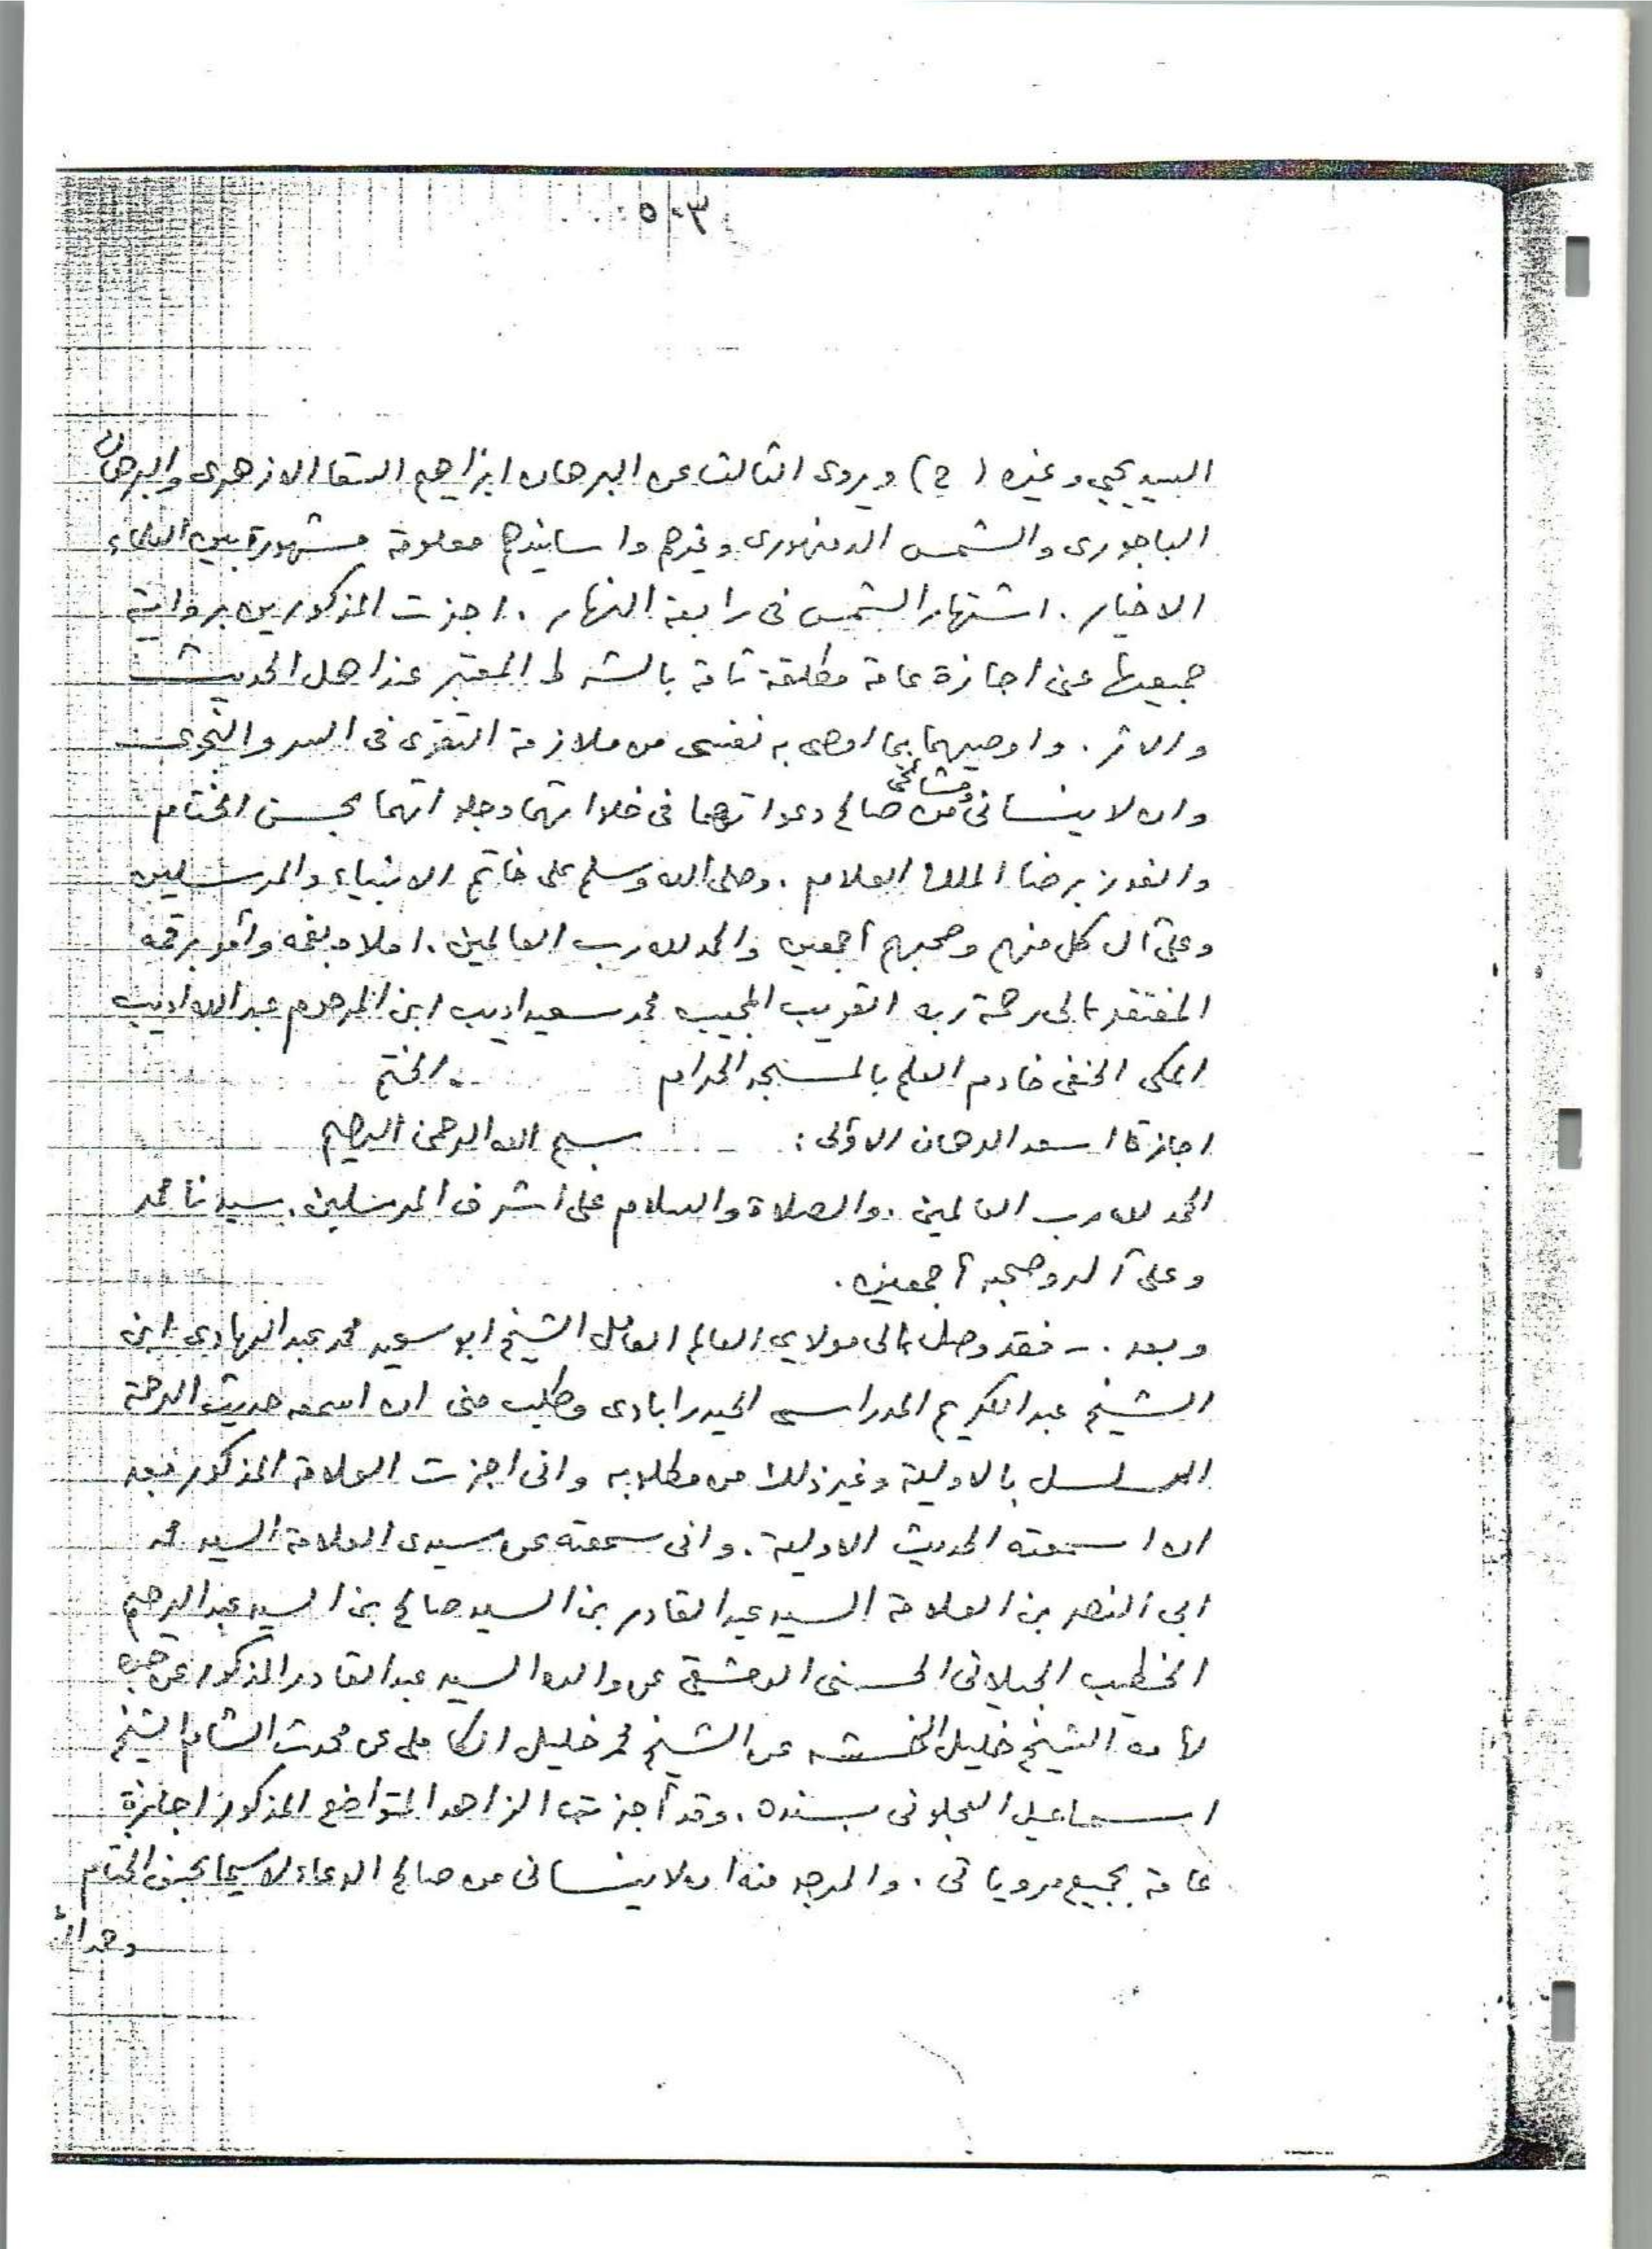 ٥٠٣
السيد يحيى وغيره (ح) ويروى الثالث عن البرهان ابراهيم السقا الازهرى والبرهان
الباجورى والشمس الدمنهورى وغيرهم واسانيدهم معلومة مشهورة بين العلماء
الاخيار. اشتهار الشمس فى رابعة النهار. اجزت المذكورين برواية
جميعها عنى اجازة عامة مطلقة تامة بالشرط المعتبر عند اهل الحديث
والاثر. واوصيهما بما اوصى به نفسى من ملازمة التقوى فى السر والنجوى
وان لا ينسانى ومشائخى من صالح دعواتهما فى خلواتهما وجلواتهما بحسن الختام
والفوز برضا الملك العلام. وصلى الله وسلم على خاتم الانبياء والمرسلين
وعلى آل كل منهم وصحبهم أجمعين والحمد لله رب العالمين. املاه بفمه وأمر برقمه
المفتقر الى رحمة ربه القريب المجيب محمد سعيد اديب ابن المرحوم عبد الله اديب
المكى الحنفى خادم العلم بالمسجد الحرام الختم
اجازة اسعد الدهان الاولى: بسم الله الرحمن الرحيم
الحمد لله رب العالمين. والصلاة والسلام على اشرف المرسلين. سيدنا محمد
وعلى آله وصحبه أجمعين.
وبعد. - فقد وصل الى مولاي العالم العامل الشيخ ابو سعيد محمد عبد الهادى ابن
الشيخ عبد الكريم المدراسى الحيدرابادى وطلب منى ان اسمعه حديث الرحمة
المسلسل بالاولية وغير ذلك من مطلابه وانى اجزت العلامة المذكور فبعد
ان اسمعته الحديث الاولية. وانى سمعته عن سيدى العلامة السيد محمد
ابى النصر بن العلامة السيد عبد القادر بن السيد صالح بن السيد عبد الرحيم
الخطيب الجيلانى الحسنى الدمشقى عن والده السيد عبد القادر المذكور عن جده
لأمه الشيخ خليل الخشه عن الشيخ محمد خليل الكاملى عن محدث الشام الشيخ
اسماعيل العجلونى بسنده. وقد أجزت الزاهد المتواضع المذكور اجازة
عامة بجميع مروياتى. والمرجو منه ان لا ينسانى من صالح الدعاء لا سيما بحسن الختام